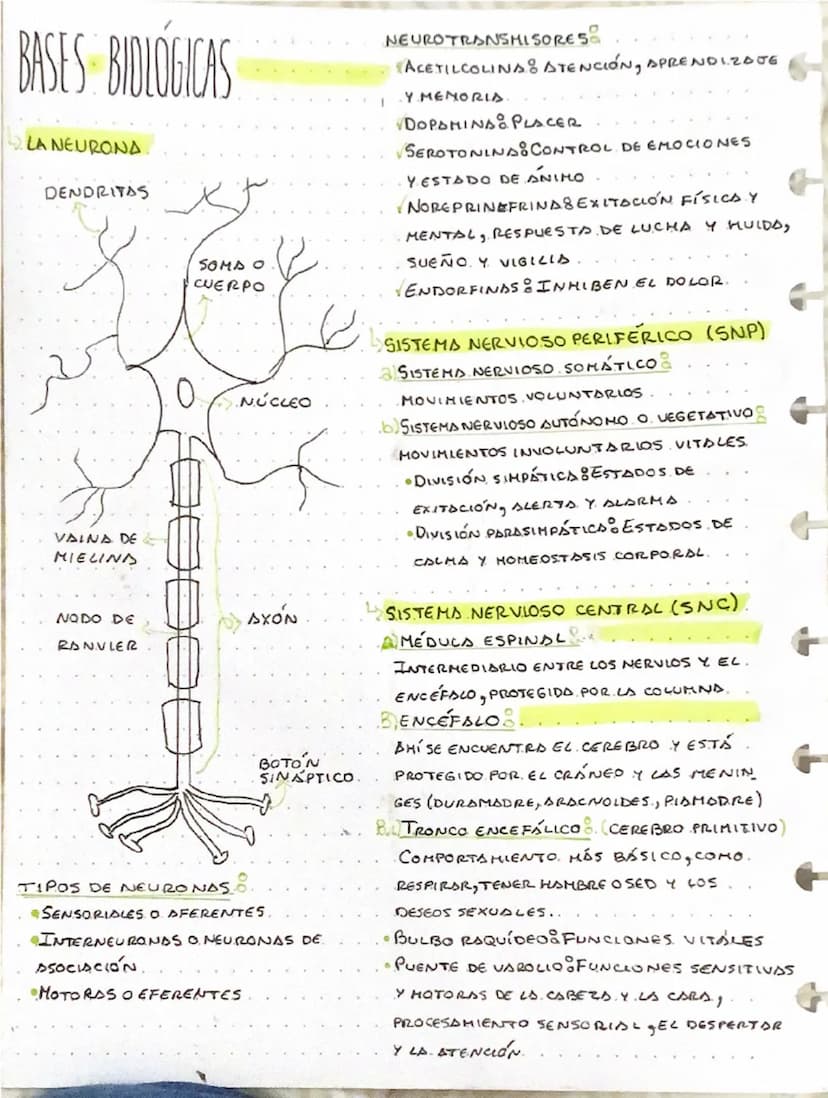 BASES BIOLÓGICAS
LA NEURONA
DENDRITAS
SOMA O
CUERPO
NÚCLEO
VAINA DE
MIELINA
NODO DE
RANVIER
AXÓN
BOTÓN
SINÁPTICO
TIPOS DE NEURONAS:
• SENSORIALES O AFERENTES
• INTERNEURONAS O NEURONAS DE
ASOCIACIÓN
• MOTORAS O EFERENTES
NEUROTRANSMISORES:
✓ ACETILCOLINA: ATENCIÓN, APRENDIZAJE
Y MEMORIA
✓ DOPAMINA: PLACER
✓ SEROTONINA: CONTROL DE EMOCIONES
Y ESTADO DE ÁNIMO
✓ NOREPRINAFRINA: EXITACIÓN FÍSICA Y
MENTAL, RESPUESTA DE LUCHA Y HUIDA,
SUEÑO Y VIGILIA
✓ ENDORFINAS: INHIBEN EL DOLOR
SISTEMA NERVIOSO PERIFÉRICO (SNP)
a) SISTEMA NERVIOSO SOMÁTICO:
MOVIMIENTOS VOLUNTARIOS
b) SISTEMA NERVIOSO AUTÓNOMO O VEGETATIVO:
MOVIMIENTOS INVOLUNTARIOS VITALES
• DIVISIÓN SIMPÁTICA: ESTADOS DE
EXITACIÓN, ALERTA Y ALARMA
• DIVISIÓN PARASIMPÁTICA: ESTADOS DE
CALMA Y HOMEOSTASIS CORPORAL
SISTEMA NERVIOSO CENTRAL (SNC)
a) MÉDULA ESPINAL:
INTERMEDIARIO ENTRE LOS NERVIOS Y EL
ENCÉFALO, PROTEGIDA POR LA COLUMNA
B) ENCÉFALO:
AHÍ SE ENCUENTRA EL CEREBRO Y ESTÁ
PROTEGIDO POR EL CRÁNEO Y LAS MENIN_
GES (DURAMADRE, ARACNOIDES, PIAMADRE)
B.1) TRONCO ENCEFÁLICO: (CEREBRO PRIMITIVO)
COMPORTAMIENTO MÁS BÁSICO, COMO
RESPIRAR, TENER HAMBRE O SED Y LOS
DESEOS SEXUALES.
• BULBO RAQUÍDEO: FUNCIONES VITALES
• PUENTE DE VAROLIO: FUNCIONES SENSITIVAS
Y MOTORAS DE LA CABEZA Y LA CARA,
PROCESAMIENTO SENSORIAL, EL DESPERTAR
Y LA ATENCIÓN